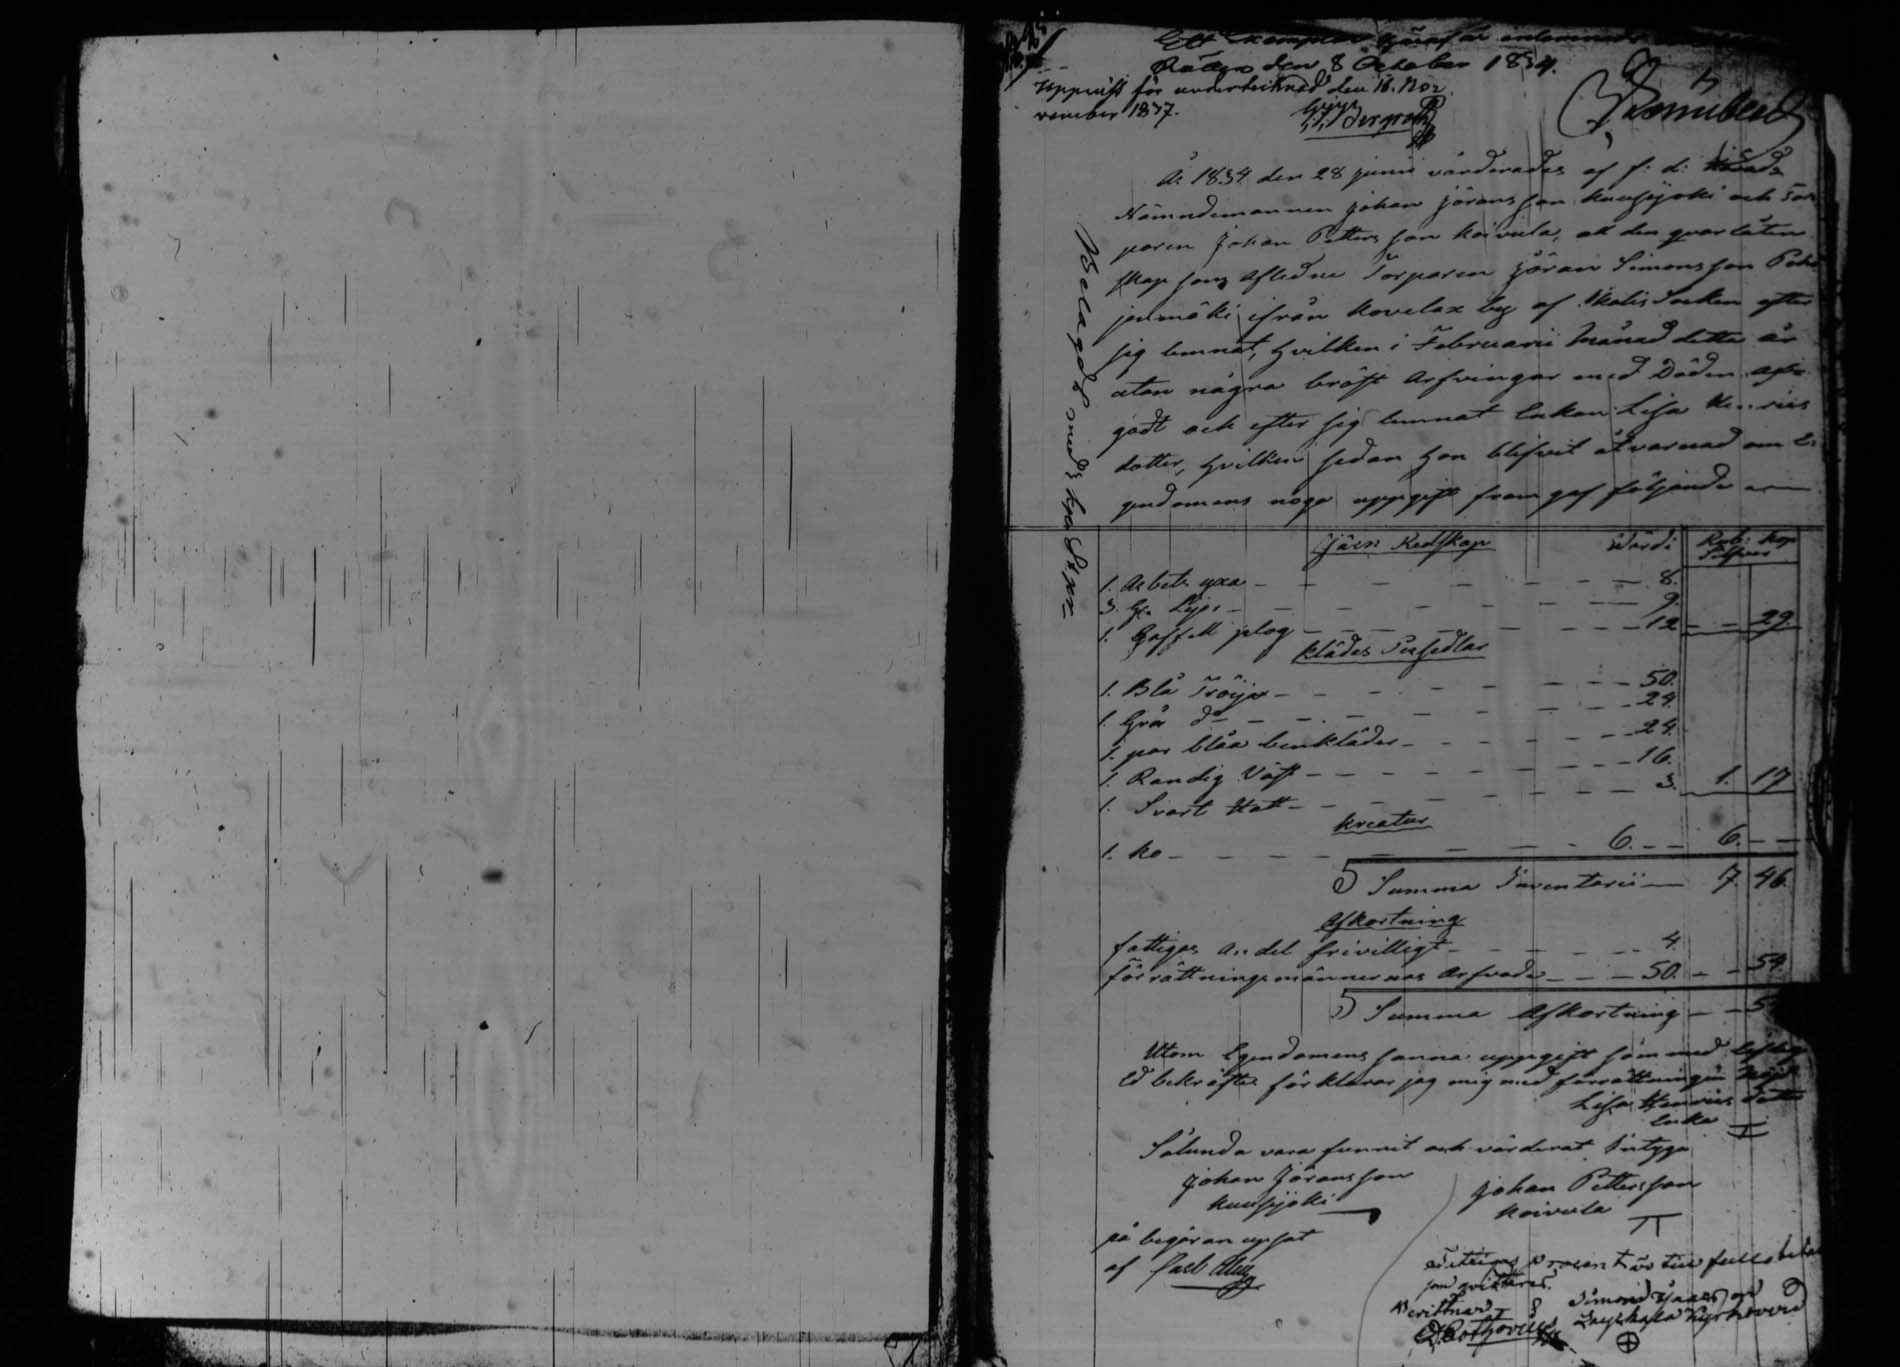 Ett Exemplar häraf är inlemnadt
Rätten den 8 October 1834.
Uppvist för undertecknad den 16. No-
vember 1837.
År 1834 den 28 junii värderades af f: d:
Nämndemannen Johan Jöransson Kuusijoki och Tor
paren Johan Pettersson Koivula, all den qvarlåten
skap som Afledne Torparen Jöran Simonsson
ifrån Kovelax by af Socken efter
sig lemnat, hvilken i Februarii Månad detta år
utan några bröst Arfvingar med Döden afgå
gådt och efter sig lemnat Enkan Lisa Henrics
dotter, hvilken sedan hon blifvit åtvarnad om E-
gendomens noga uppgift fram gaf följande
Belagdt med
Järn Redskap Värdi Rub: kop Silfver
1. Arbets yxa 8.
3. Gl. Lijor 9.
1. Gaffell plog 12 29
Klädes Persedlar
1. Blå Tröija 50.
1. Grå do 24.
1. par blåa benkläder 24.
1. Randig Väst 16.
1. Svart Hatt 3. 1. 17
Kreatur
1. Ko 6. 6.
Summa Inventarii 7. 46.
Afkortning
fattiges Andel frivilligt 4.
förrättningsmännernas Arfvode 50. 54.
Summa Afkortning 5
Utom Egendomens sanna uppgift som med
Ed bekräftes förklarar jag mig med förrättningen nöjd
Lisa Henrics dotter
Enka
Sålunda vara funnit och värderat Intyga
Johan Jöransson Johan Pettersson
Kuusijoki Koivula
på begäran upsat
af Carl
fattigas procent är till fullo
som qvitteras.